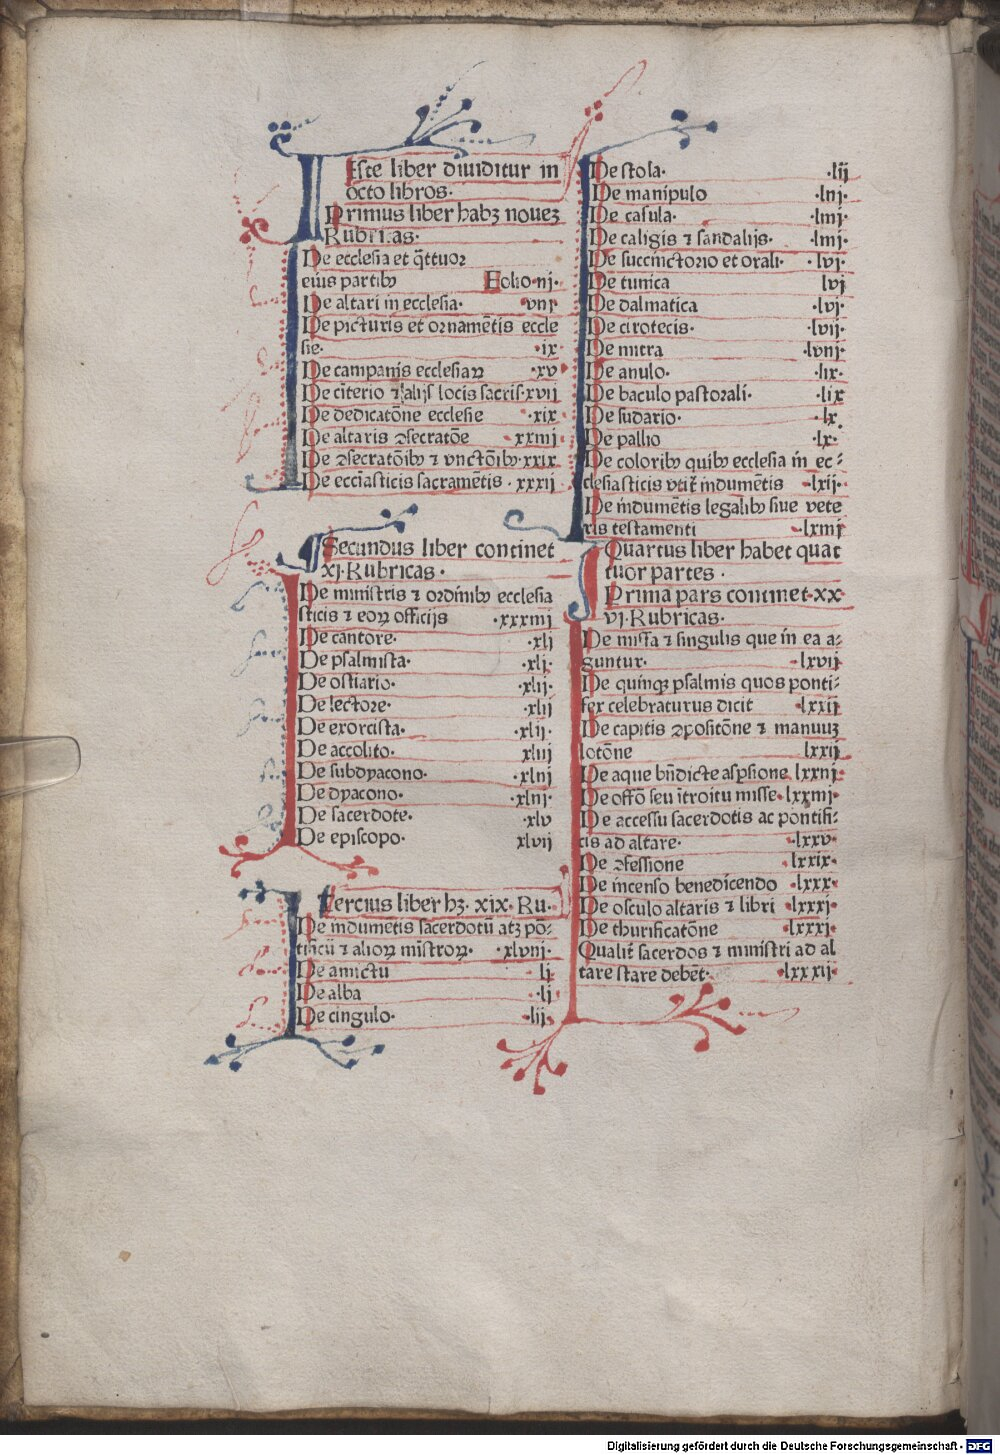 Iste liber diuiditur in
octo libros·
Primus liber habꝫ nouez
Rubricas·
De ecclesia et q̄ttuor
eius partibꝰ Folio·iii·
De altari in ecclesia· ·viii·
De picturis et ornamētis eccle
sie· ·ix·
De campanis ecclesiaꝝ ·xv·
De cīterio ⁊ alijs locis sacris·xvii
De dedicatōne ecclesie ·xix·
De altaris ꝯsecratōe ·xxiiii·
De ꝯsecratōibꝰ ⁊ vnctōibꝰ·xxix·
De eccīasticis sacramētis·xxxii
Secundus liber continet
xi·Rubricas·
De ministris ⁊ ordinibꝰ ecclesia
sticis ⁊ eoꝝ officijs ·xxxiiii
De cantore· ·xli
De psalmista· ·xli·
De ostiario· ·xlii·
De lectore· ·xlii
De exorcista· ·xlii·
De accolito· xliii
De subdyacono· ·xliii
De dyacono· ·xliii·
De sacerdote· ·xlv
De episcopo· xlvii
Tercius liber hꝫ·xix·Ru·
De indumētis sacerdotū atqꝫ pō-
tificū ⁊ alioꝝ mīstroꝝ· ·xlviii·
De amictu li
De alba ·li·
De cingulo· ·lii·
De stola· ·lii
De manipulo ·liii·
De casula· ·liiii·
De caligis ⁊ sandalijs· ·liiii·
De succinctorio et orali· ·lvi·
De tunica lvi
De dalmatica ·lvi·
De cirotecis· ·lvii·
De mitra ·lviii·
De anulo· ·lix·
De baculo pastorali· ·lix
De sudario· ·lx·
De pallio ·lx·
De coloribꝰ quibꝰ ecclesia in ec-
clesiasticis vtit̄ indumētis ·lxii·
De indumētis legalibꝰ siue vete
ris testamenti ·lxiiii
Quartus liber habet quat
tuor partes·
Prima pars continet·xx
vi·Rubricas·
De missa ⁊ singulis que in ea a-
guntur· ·lxvii
De quinqꝫ psalmis quos ponti-
fex celebraturus dicit ·lxxii
De capitis ꝯpositōne ⁊ manuuꝫ
lotōne lxxii
De aque bn̄dicte asꝑsione lxxiii·
De offō seu ītroitu misse·lxxiiii·
De accessu sacerdotis ac pontifi-
cis ad altare· ·lxxv·
De ꝯfessione ·lxxix·
De incenso benedicendo ·lxxx·
De osculo altaris ⁊ libri ·lxxxi·
De thurificatōne ·lxxxi·
Qualit̄ sacerdos ⁊ ministri ad al
tare stare debēt· ·lxxxii·
Digitalisierung gefördert durch die Deutsche Forschungsgemeinschaft - DFG